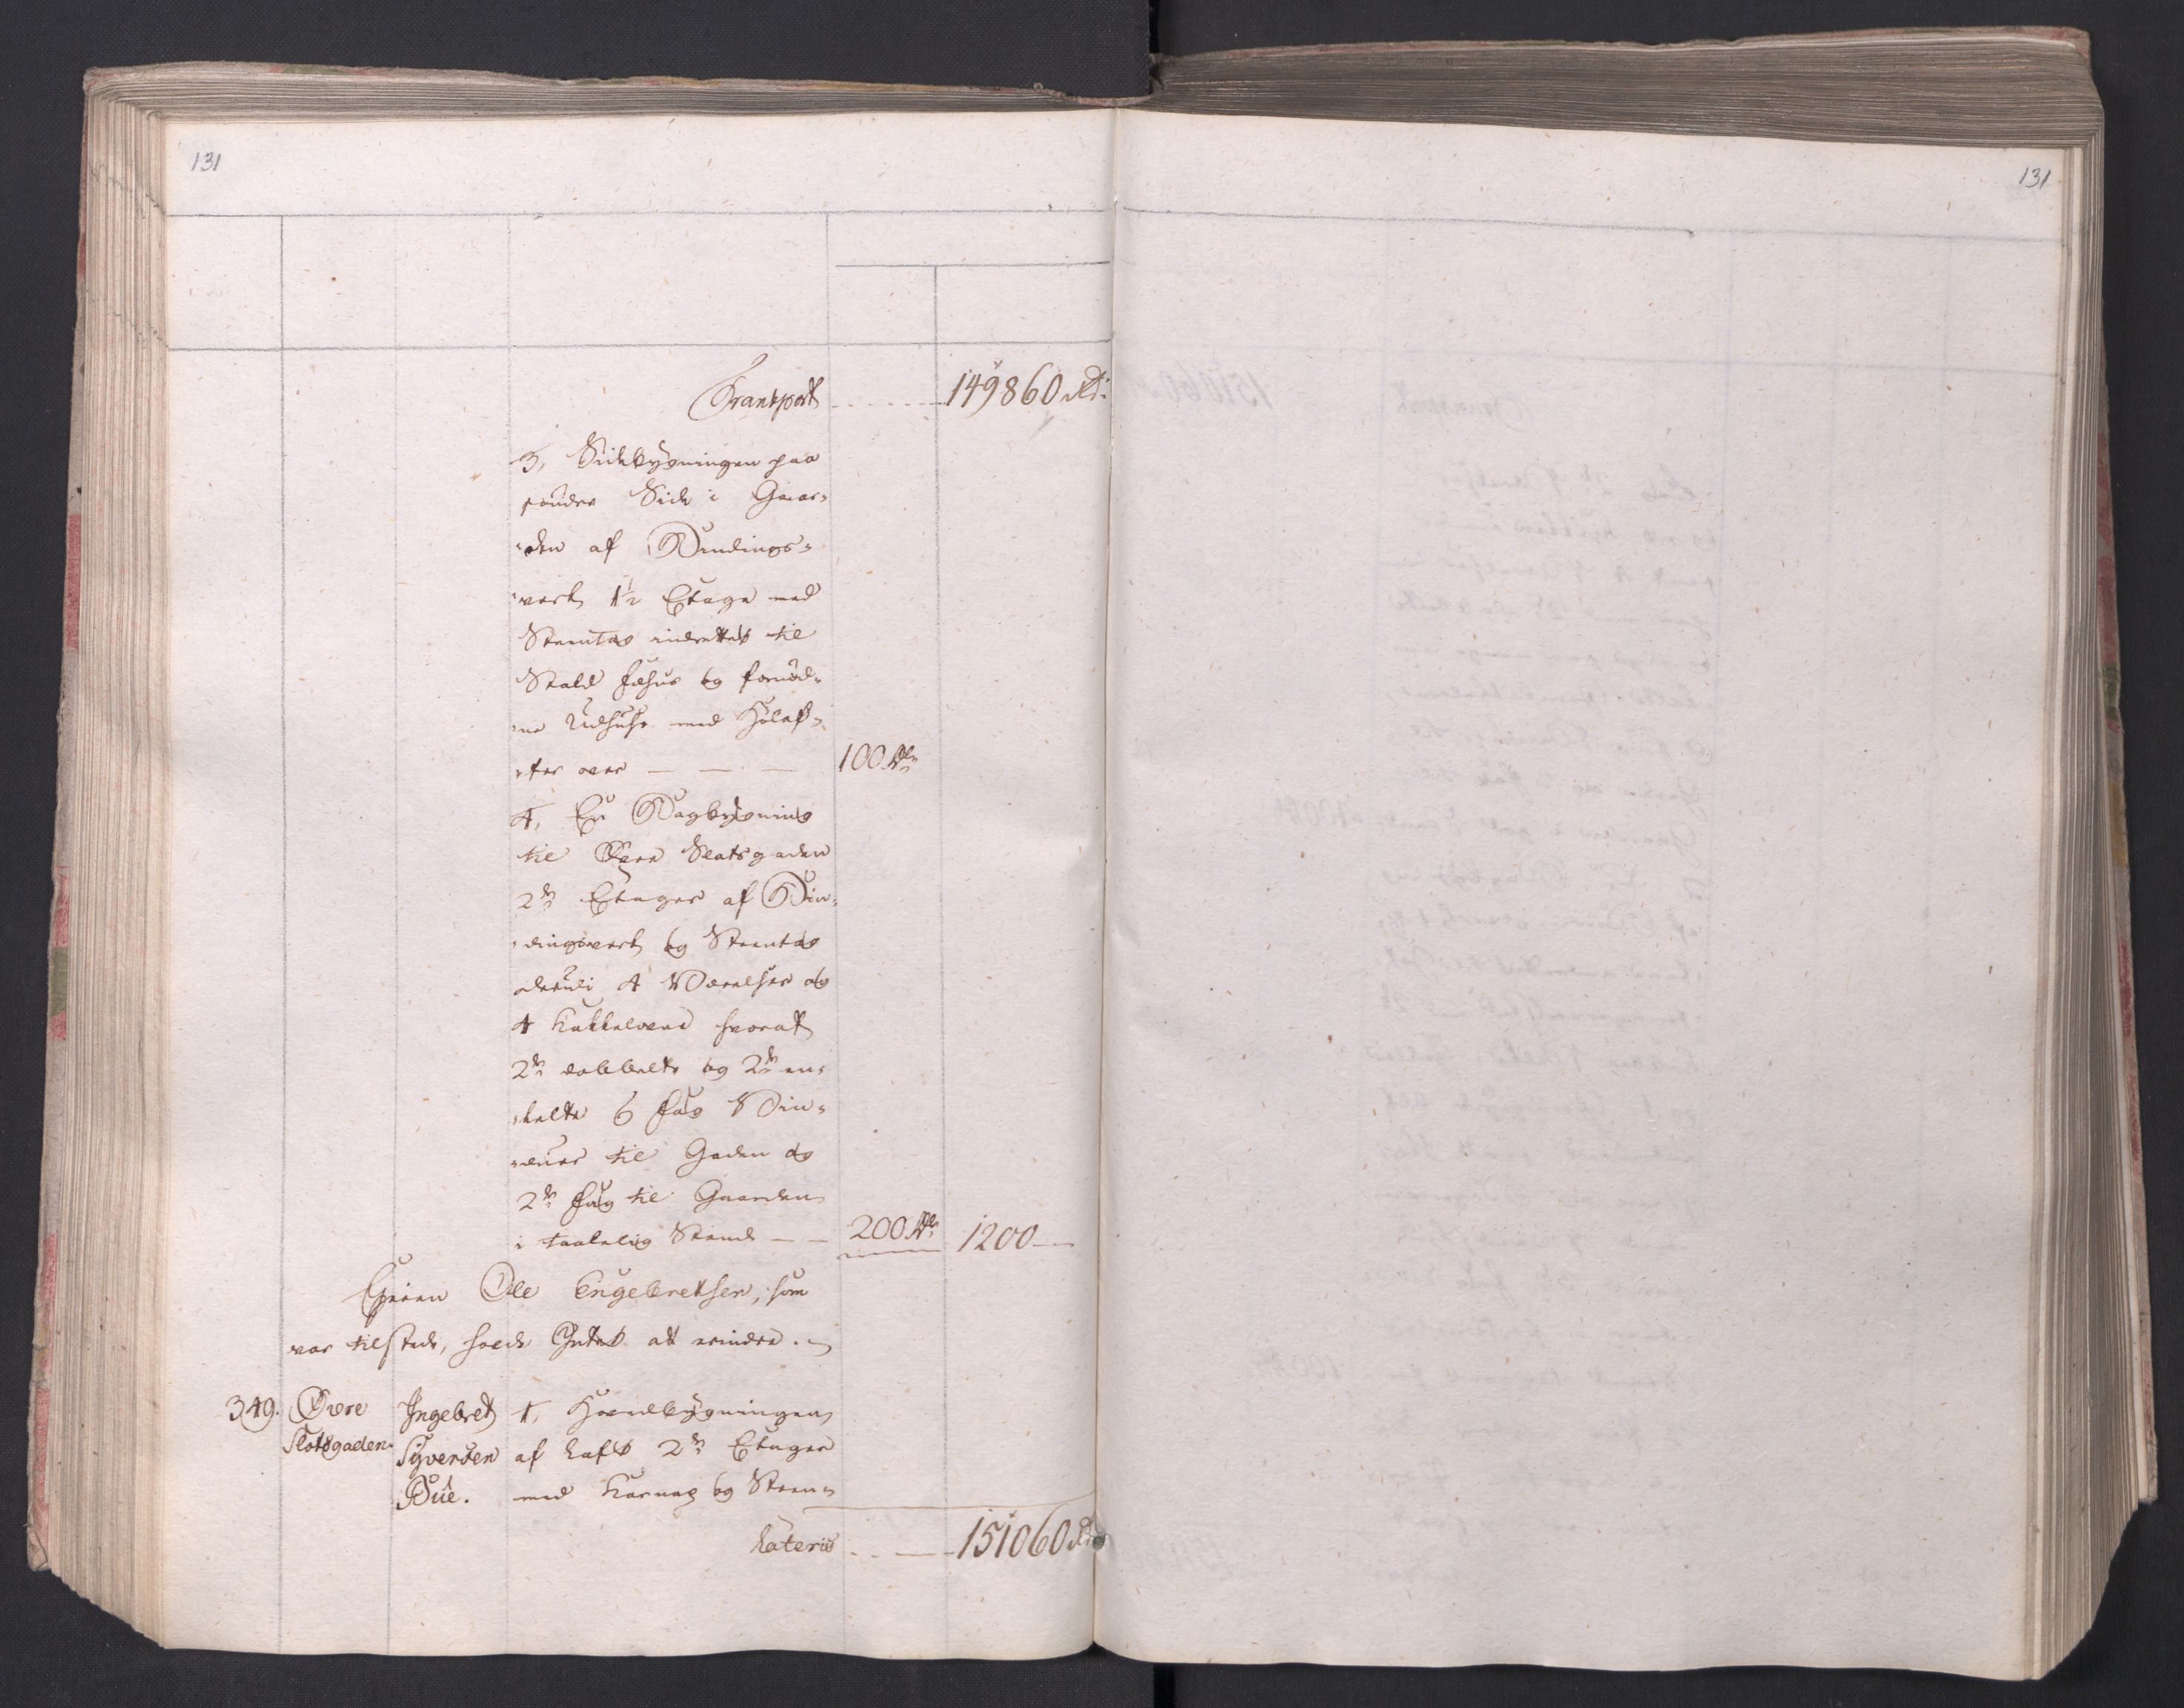 131
131
Transport - - - - - - 149860 Rd:
3, Sidebygningen paa
søndre Side i Gaar-
-den af Bindings-
-verk 1½ Etage med
Steentag indrettet til
Stald Fæhus og fornød-
-ne Udhuse med Høloft
-ter over — — — 100 Rdr
4, En Bagbygning
til Øvre Slotsgaden
2de Etager af Bin-
-dingsverk og Steentag
deri 4 Værelser og
4 Kakkelovne hvoraf
2de dobbelte og 2de en-
-kelte 6 Fag Vin-
-duer til Gaden og
2de Fag til Gaarden
i taalelig Stand — — 200 Rdr 1200 —
Eieren Ole Engebretsen, som
var tilstede, havde Intet at erindre.
349. Øvre Ingebret 1, Hovedbygningen
Slotsgaden Syversen af Laft 2de Etager
Bûe. med Karnap og Steen-
Lateris - - — 151060 Rd